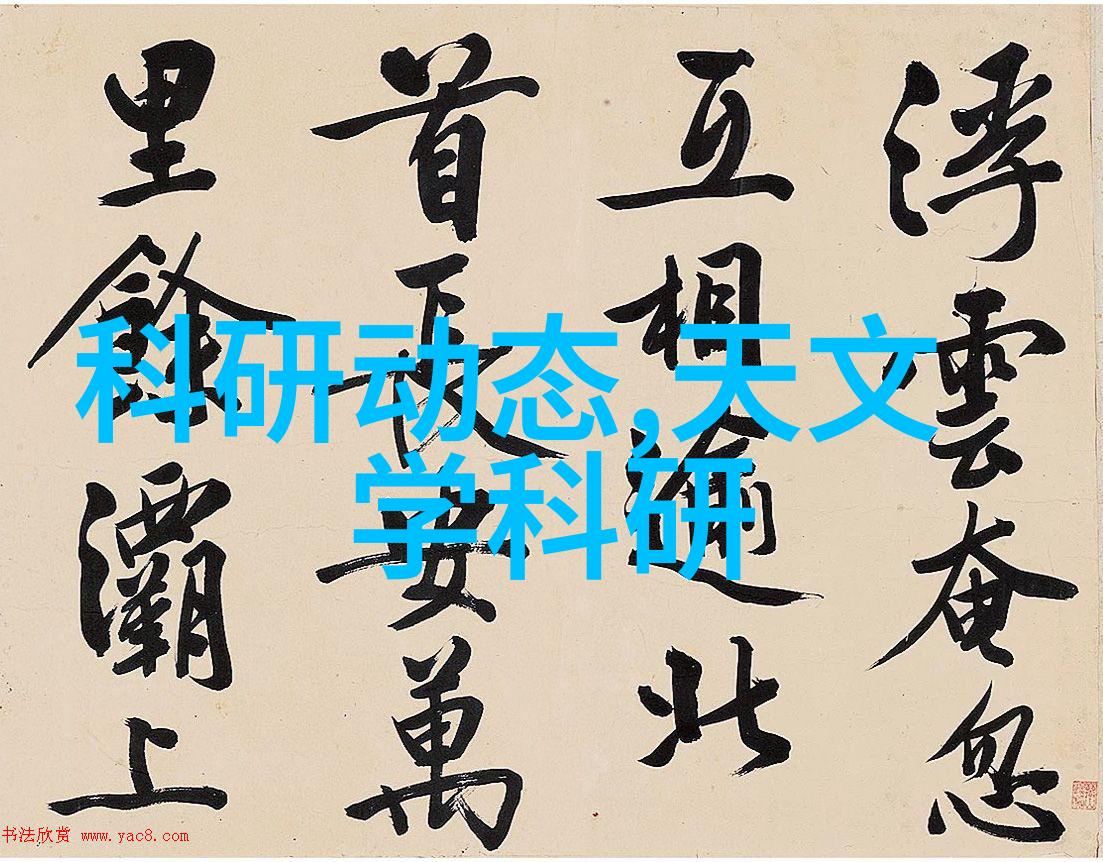 浮雲奄忽
互相逾北
首長安萬
里餘灞上
科研动态,天文
学科研
书法欣赏 www.yac8.com